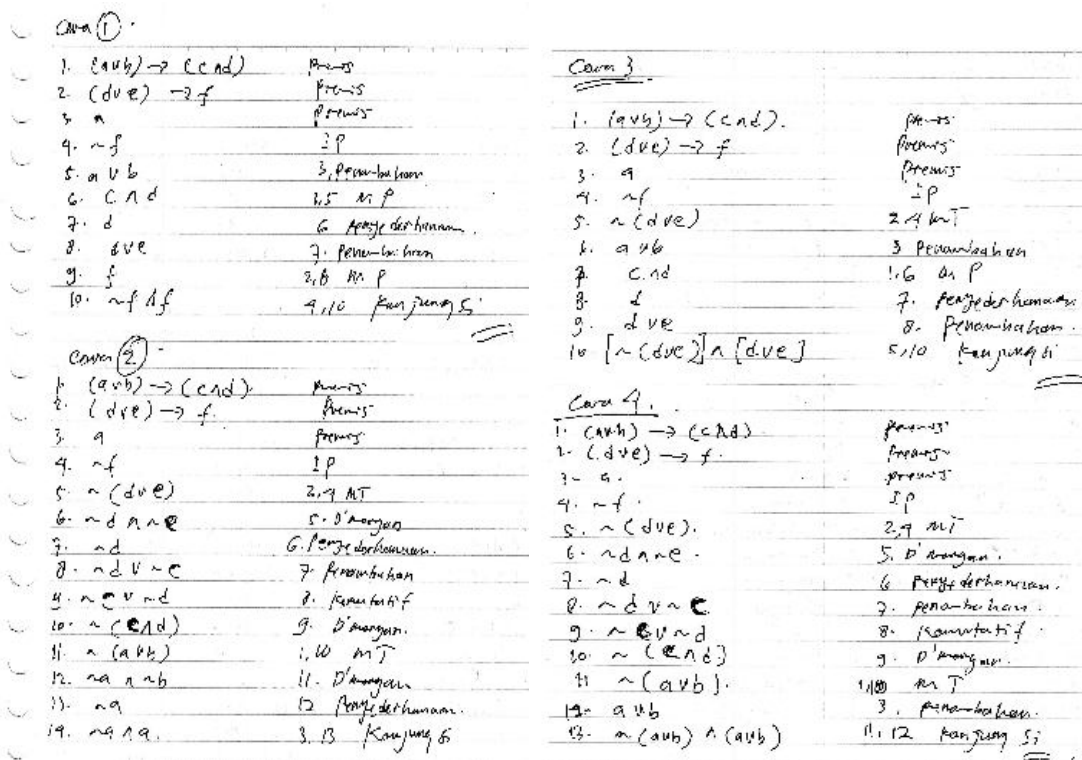 Cara 1.
1. (avb) → (c∧d) Premis
2. (dve) → f Premis
3. a Premis
4. ~f IP
5. avb 3, Penambahan
6. c∧d 1,5 MP
7. d 6 Penyederhanaan.
8. dve 7. Penambahan
9. f 2,8 MP
10. ~f ∧ f 4,10 Konjungsi
Cara 2.
1. (avb) → (c∧d). Premis
2. (dve) → f. Premis
3. a Premis
4. ~f IP
5. ~(dve) 2,4 MT
6. ~d ∧ ~e 5. D'morgan
7. ~d 6. Penyederhanaan.
8. ~d v ~c 7 Penambahan
9. ~c v ~d 8. Komutatif
10. ~(c∧d) 9. D'morgan.
11. ~(avb) 1,10 MT
12. ~a ∧ ~b 11. D'morgan
13. ~a 12 Penyederhanaan.
14. ~a ∧ a. 3,13 Konjungsi
Cara 3
1. (avb) → (c∧d). Premis
2. (dve) → f Premis
3. a Premis
4. ~f IP
5. ~(dve) 2,4 MT
6. avb 3 Penambahan
7. c∧d 1,6 MP
8. d 7. Penyederhanaan
9. dve 8. Penambahan.
10 [~(dve)] ∧ [dve] 5,10 Konjungsi
Cara 4.
1. (avb) → (c∧d) Premis
2. (dve) → f. Premis
3. a. Premis
4. ~f. IP
5. ~(dve). 2,4 MT
6. ~d ∧ ~e. 5. D'morgan.
7. ~d 6 Penyederhanaan.
8. ~d v ~c 7. Penambahan.
9. ~c v ~d 8. Komutatif.
10. ~(c∧d) 9. D'morgan.
11 ~(avb). 1,10 MT
12. avb 3. Penambahan.
13. ~(avb) ∧ (avb) 11,12 Konjungsi